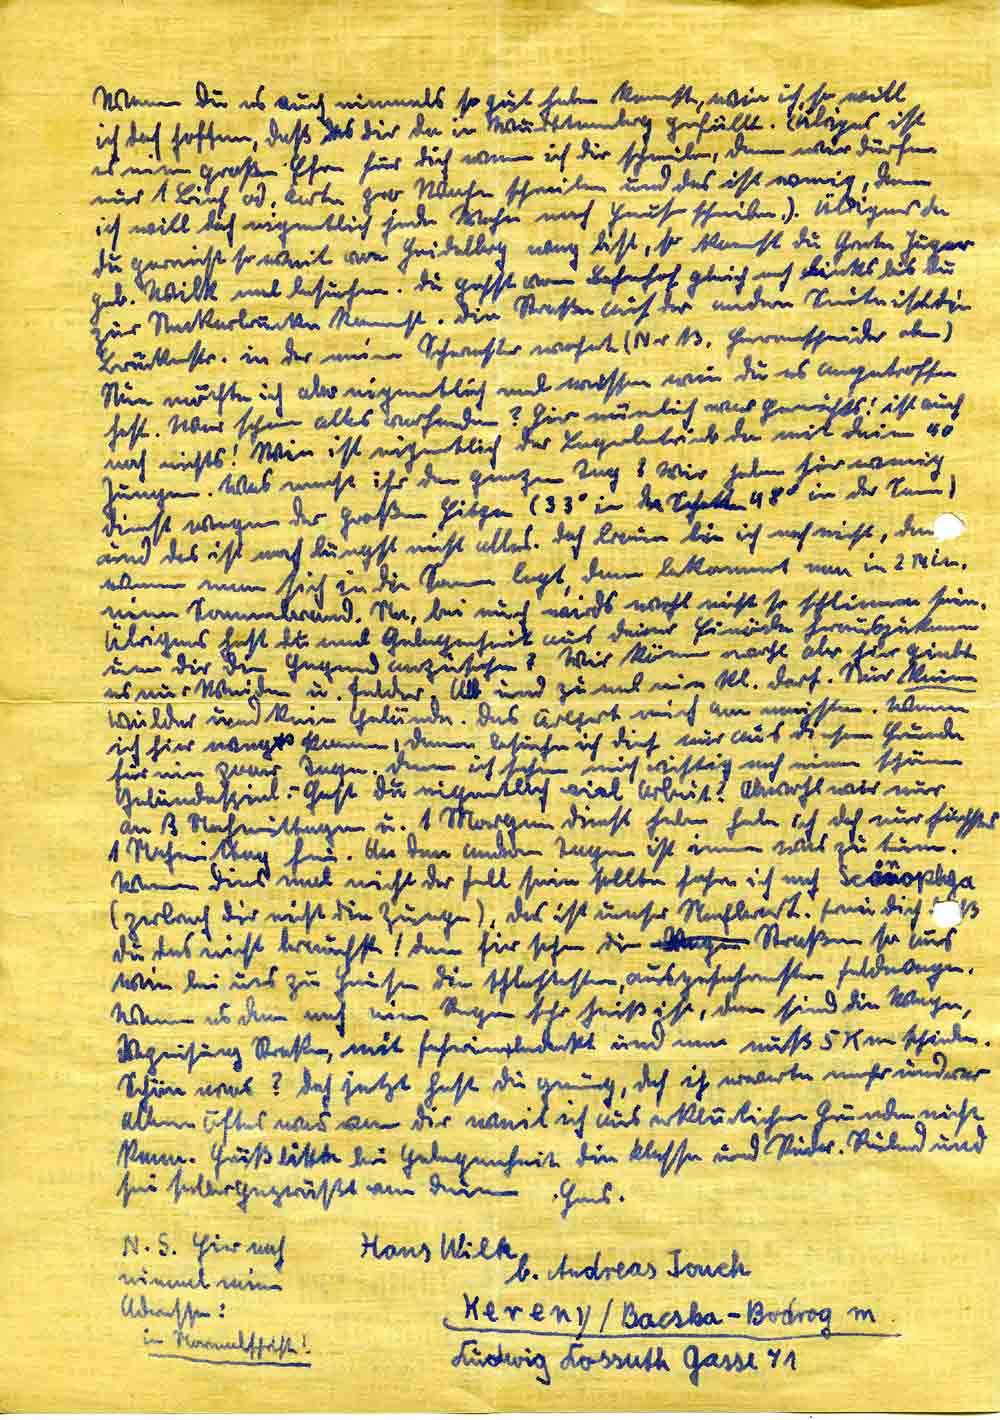 Wenn Du es auch niemals so gut haben kannst, wie ich, so will
ich doch hoffen, daß es dir da in Württemberg gefällt. (Übrigens ist
es eine große Ehre für dich wenn ich dir schreibe, denn wir dürfen
nur 1 Brief od. Karte pro Woche schreiben und das ist wenig, denn
ich will doch eigentlich jede Woche nach Haus schreiben.). Übrigens da
du garnicht so weit von Heidelberg weg bist, so kannst du Grete
geb. Wilk mal besuchen. Du gehst vom Bahnhof gleich nach links bis du
zur Neckarbrücke kommst. Die Straße auf der andern Seite ist die
Brückenstr. in der meine Schwester wohnt (Nr 13, oben)
Nun möchte ich aber eigentlich mal wissen wie du es angetroffen
hast. War schon alles vorhanden? Hier nämlich war garnichts! ist auch
noch nichts! Wie ist eigentlich der Lagerbetrieb da mit deinen 40
Jungen. Was macht ihr den ganzen Tag? Wir haben hier wenig
Dienst wegen der großen Hitze (33° im Schatten 48° in der Sonne)
und das ist noch längst nicht alles. Doch braun bin ich noch nicht, denn
wenn man sich in die Sonne legt, dann bekommt man in 2 Min.
einen Sonnenbrand. Na, bei euch wirds wohl nicht so schlimm sein.
Übrigens hast du mal Gelegenheit aus deiner Einöde herauszukommen
um dir die Gegend anzusehen? Wir können wohl aber hier giebt
es nur Weiden u. Felder. Ab und zu mal ein kl. Dorf. Nur keine
Wälder und kein Gelände. Das ärgert mich am meisten. Wenn
ich hier weg kann, dann besuche ich dich nur aus diesem Grunde
für ein paar Tage. Denn ich sehne mich richtig nach einem schönen
Geländespiel.- Hast du eigentlich viel Arbeit? Obwohl wir nur
an 3 Nachmittagen u. 1 Morgen Dienst haben habe ich doch nur höchstens
1 Nachmittag frei. An den andern Tagen ist immer was zu tun.
Wenn dies mal nicht der Fall sein sollte fahre ich nach
(zerbrech dir nicht die Zunge), das ist unser Nachbarort. Freu dich daß
du das nicht brauchst! denn hier sehen die Straßen so aus
wie bei uns zu Hause die schlechtesten, ausgefahrensten Feldwege.
Wenn es dann nach einem Regen sehr heiß ist, dann sind die Wege,
Verzeihung Straßen, mit bedeckt und man muß 5 Km schieben.
Schön was? Doch jetzt hast du genug, doch ich erwarte mehr und vor
allem öfters was von dir weil ich aus erklärlichen Gründen nicht
kann. Grüß bitte bei Gelegenheit die Klasse und und
sei selber gegrüßt von deinem Hans.
N. S. Hier noch
einmal meine
Adresse:
in Normalschrift!
Hans Wilk
b. Andreas Jouch
Kereny / Bacska-Bodrog m
Ludwig Kossuth Gasse 71